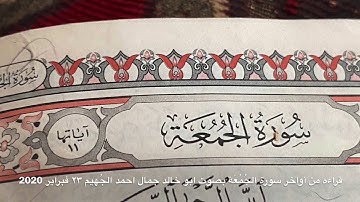 سُورَةُ الجُمُعَةِ
آياتها
١١
قراءه من اواخر سورة الجُمُعَة بصوت ابو خالد جمال احمد الجُهيم ٢٣ فبراير 2020